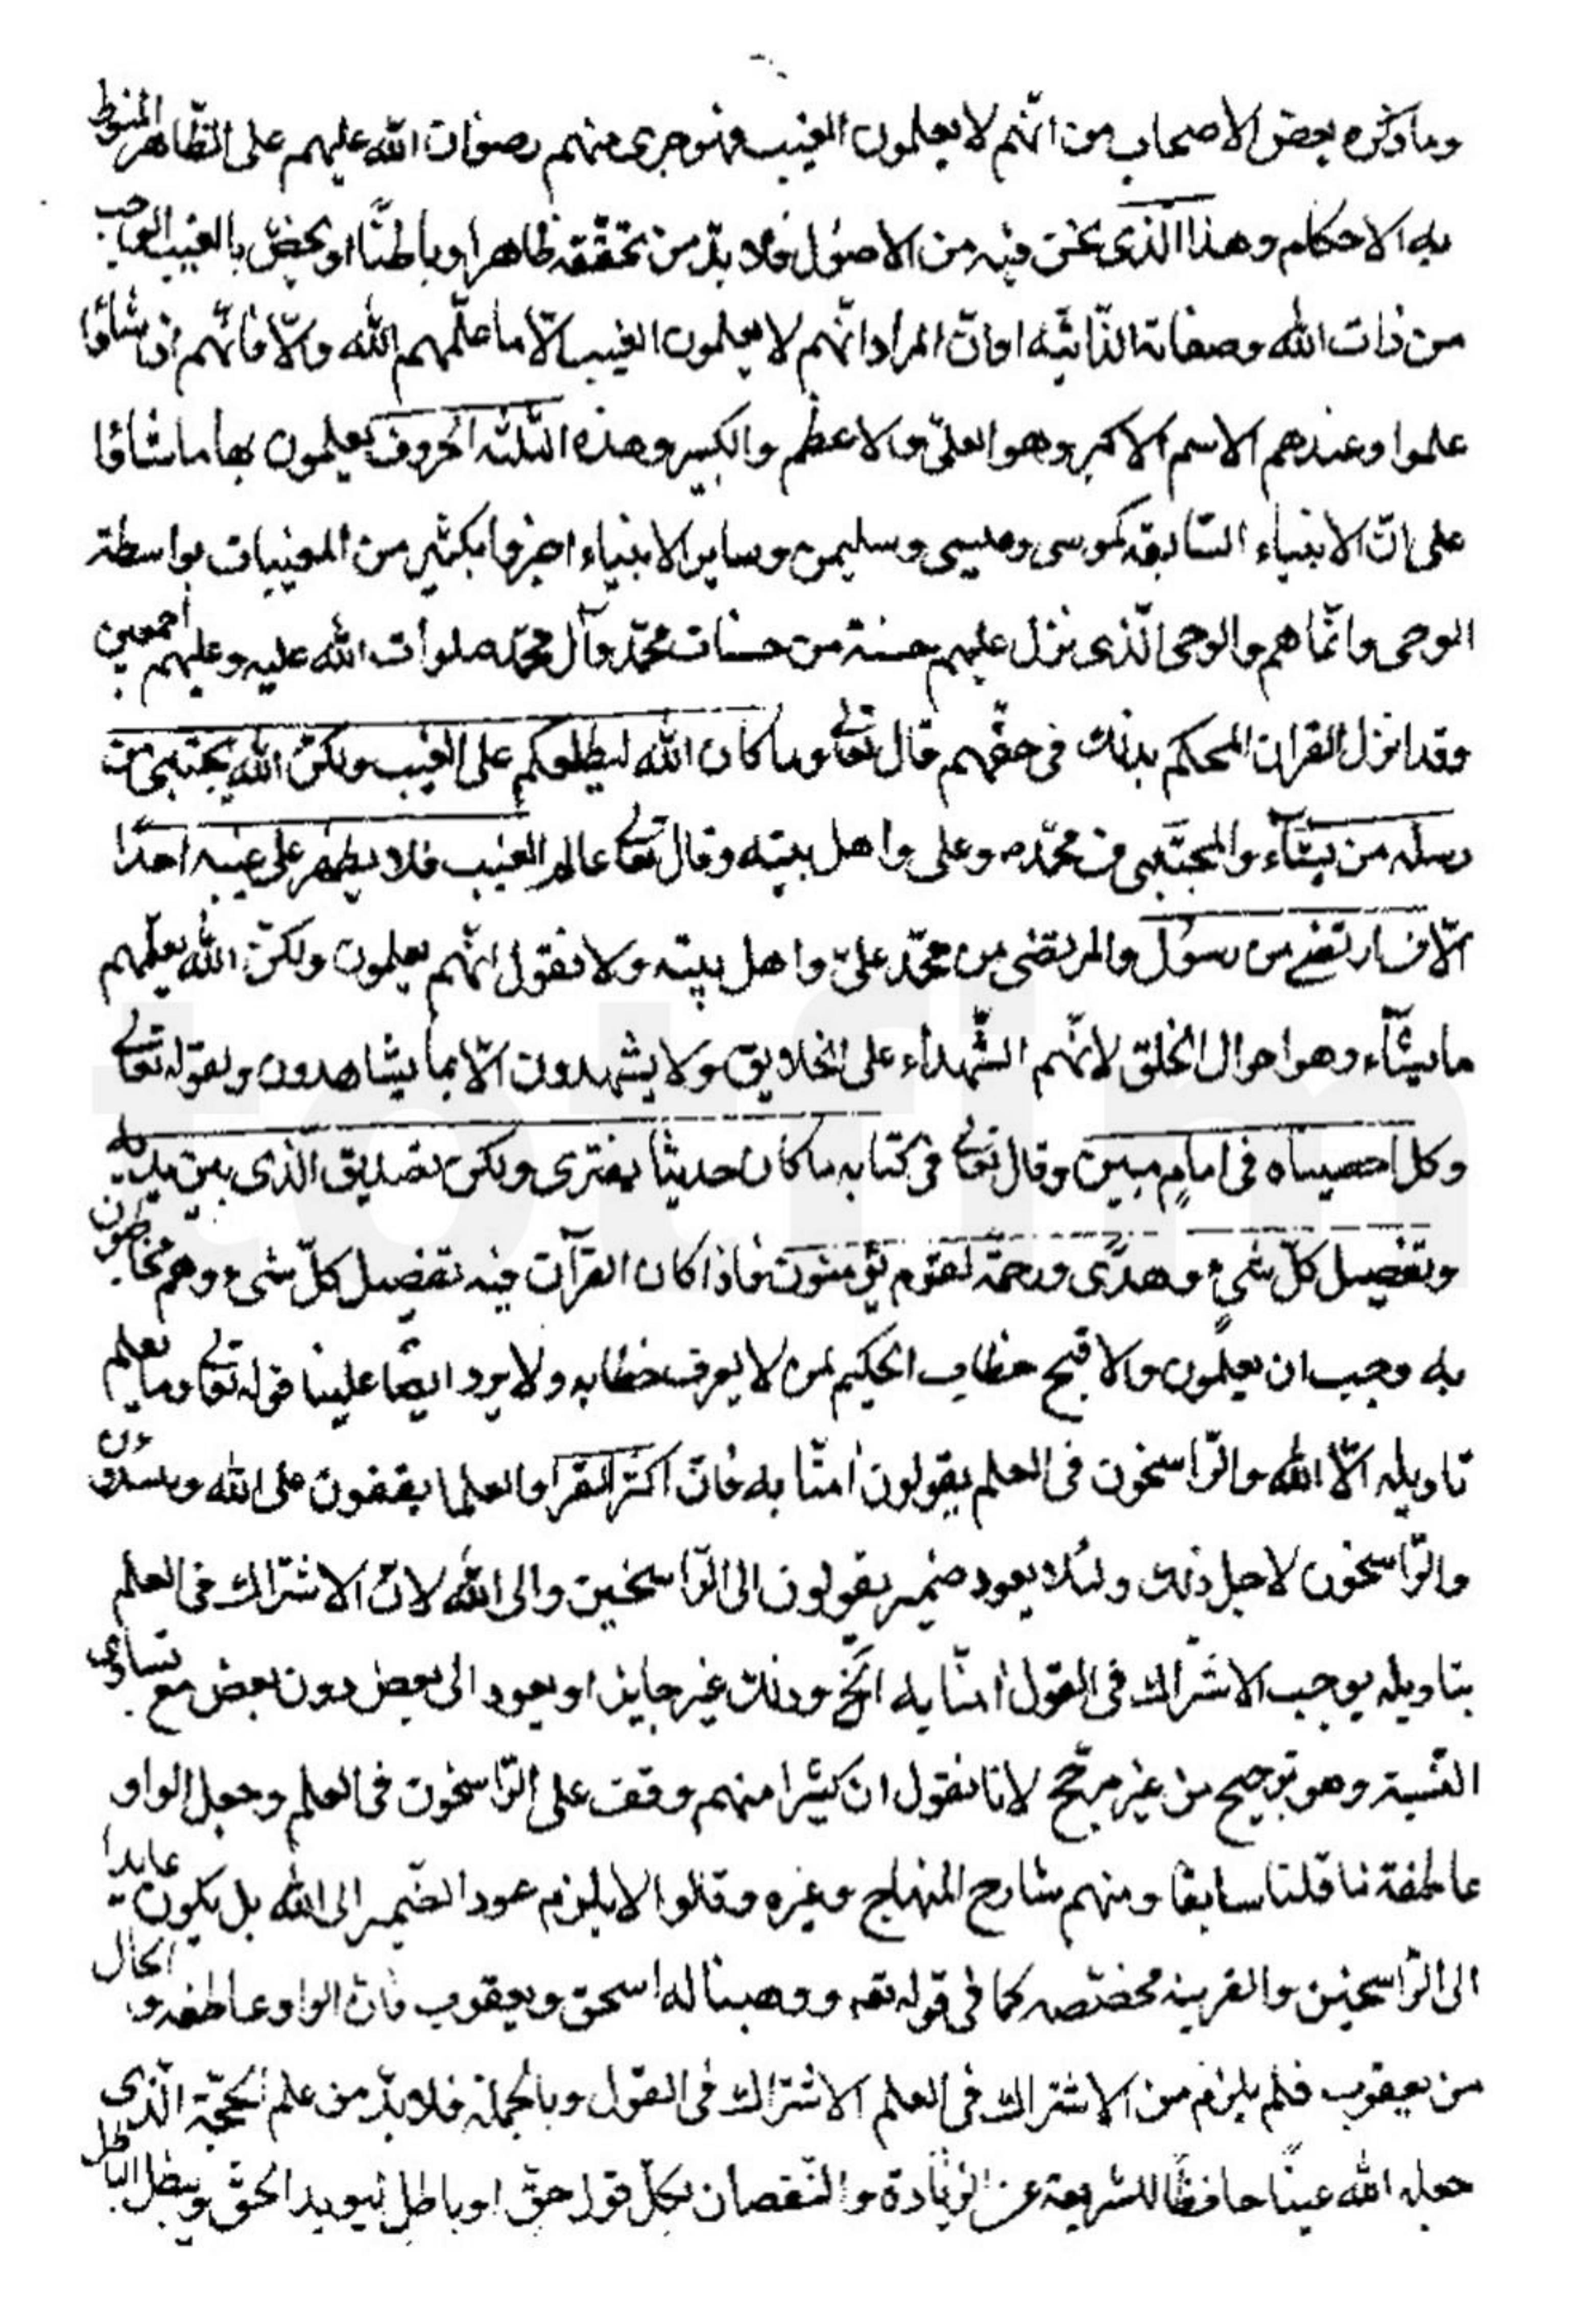 وما ذكره بعض الاصحاب من انّهم لا يعلمون الغيب فهو جرى منهم رضوان الله عليهم على الظّاهر المنوط
به الاحكام وهذا الّذى نحن فيه من الاصول فلا بدّ من تحقّقه ظاهرا وباطنًا او يخصّ بالغيب الواجب
من ذات الله وصفاته الذّاتيّه او انّ المراد انّهم لا يعلمون الغيب الّا ما علّمهم الله والّا فانّهم اذا شاؤا
علموا وعندهم الاسم الاكبر وهو العلىّ والاعظم والكبير وهذه الثلثة الحروف يعلمون بها ما شاؤا
على انّ الانبياء السّابقه كموسى وعيسى وسليمن وساير الانبياء اخبروا بكثير من المغيبات بواسطة
الوحى وانّما هم والوحى الّذى نزل عليهم حسنة من حسنات محمّد وآل محمّد صلوات الله عليه وعليهم اجمعين
وقد انزل القران المحكم بذلك فى حقّهم قال تعالى وما كان الله ليطلعكم على الغيب ولكنّ الله يجتبى من
رسله من يشآء والمجتبى من محمّد ص وعلى واهل بيته وقال تعالى عالم الغيب فلا يظهر على غيبه احدًا
الّا من ارتضى من رسول والمرتضى من محمّد علىّ واهل بيته ولا نقول انّهم يعلمون ولكنّ الله يعلّمهم
ما يشآء وهو احوال الخلق لانّهم الشّهدآء على الخلايق ولا يشهدون الّا بما يشاهدون ولقوله تعالى
وكل احصيناه فى امامٍ مبين وقال تعالى فى كتابه ما كان حديثا يفترى ولكن تصديق الّذى بين يديه
وتفصيل كلّ شىءٍ وهدًى ورحمة لقوم يؤمنون فاذا كان القرآن فيه تفصيل كلّ شىء وهم مخاطبون
به وجب ان يعلمون والا قبح خطاب الحكيم لمن لا يعرف خطابه ولا يرد ايضًا علينا قوله تعالى وما يعلم
تاويله الّا الله والرّاسخون فى العلم يقولون امنّا به فانّ اكثر القرا والعلما يقفون على الله
والرّاسخون لاجل ذلك ولئلا يعود ضمير يقولون الى الرّاسخين والى الله لانّ الاشتراك فى العلم
بتاويله يوجب الاشتراك فى القول امنّا به الخ وذلك غير جايز او يعود الى بعض دون بعض مع تساوى
النّسبة وهو ترجيح من غير مرجّح لانا نقول ان كثيرا منهم وقف على الرّاسخون فى العلم وجعل الواو
عاطفة نا قلنا سابقا ومنهم شارح المنهاج وغيره وقالوا لا يلزم عود الضّمير الى الله بل يكون عايدا
الى الرّاسخين والقرينه مخصّصه كما فى قوله تعه ووهبنا له اسحق ويعقوب فانّ الواو عاطفه و الحال
من يعقوب فلم يلزم من الاشتراك فى العلم الاشتراك فى القول وبالجملة فلا بدّ من علم الحجّة الّذى
جعله الله عينًا حافظًا للشريعة عن الزّيادة والنّقصان بكلّ قول حقّ او باطل ليويد الحقّ ويبطل الباطل